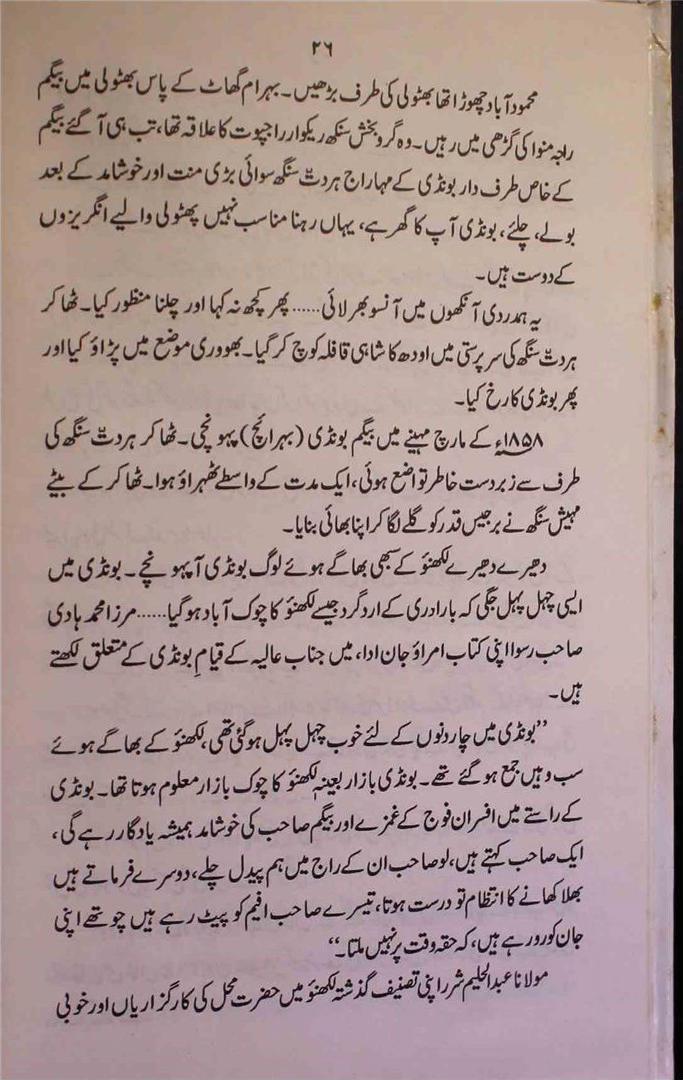 ۲۶
محمود آباد چھوڑا تھا بھٹولی کی طرف بڑھیں۔ بہرام گھاٹ کے پاس بھٹولی میں بیگم
راجہ منوا کی گڑھی میں رہیں۔ وہ گرو بخش سنکھ ریکوار راجپوت کا علاقہ تھا، تب ہی آ گئے بیگم
کے خاص طرف دار بونڈی کے مہاراج ہردتّ سنگھ سوائی بڑی منت اور خوشامد کے بعد
بولے، چلئے، بونڈی آپ کا گھر ہے، یہاں رہنا مناسب نہیں پھٹولی والیے انگریزوں
کے دوست ہیں۔
یہ ہمدردی آنکھوں میں آنسو بھر لائی...... پھر کچھ نہ کہا اور چلنا منظور کیا۔ ٹھاکر
ہردتّ سنگھ کی سرپرستی میں اودھ کا شاہی قافلہ کوچ کر گیا۔ بھووری موضع میں پڑاؤ کیا اور
پھر بونڈی کا رخ کیا۔
۱۸۵۸ء کے مارچ مہینے میں بیگم بونڈی (بہرائچ) پہونچی۔ ٹھاکر ہردتّ سنگھ کی
طرف سے زبردست خاطر تواضع ہوئی، ایک مدت کے واسطے ٹھہراؤ ہوا۔ ٹھاکر کے بیٹے
مہیش سنگھ نے برجیس قدر کو گلے لگا کر اپنا بھائی بنایا۔
دھیرے دھیرے لکھنؤ کے سبھی بھاگے ہوئے لوگ بونڈی آ پہونچے۔ بونڈی میں
ایسی چہل پہل جگی کہ بارادری کے ارد گرد جیسے لکھنؤ کا چوک آباد ہو گیا...... مرزا محمد ہادی
صاحب رسوا اپنی کتاب امراؤ جان ادا، میں جناب عالیہ کے قیامِ بونڈی کے متعلق لکھتے
ہیں۔
’’بونڈی میں چار دنوں کے لئے خوب چہل پہل ہو گئی تھی، لکھنؤ کے بھاگے ہوئے
سب وہیں جمع ہو گئے تھے۔ بونڈی بازار بعینہٖ لکھنؤ کا چوک بازار معلوم ہوتا تھا۔ بونڈی
کے راستے میں افسران فوج کے غمزے اور بیگم صاحب کی خوشامد ہمیشہ یادگار رہے گی،
ایک صاحب کہتے ہیں، لو صاحب ان کے راج میں ہم پیدل چلے، دوسرے فرماتے ہیں
بھلا کھانے کا انتظام تو درست ہوتا، تیسرے صاحب افیم کو پیٹ رہے ہیں چوتھے اپنی
جان کو رو رہے ہیں، کہ حقہ وقت پر نہیں ملتا۔‘‘
مولانا عبدالحلیم شرر اپنی تصنیف گذشتہ لکھنؤ میں حضرت محل کی کارگزاریاں اور خوبی